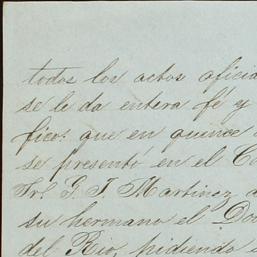 todos los actos oficia
se le da entera fé y
fico: que en quince
se presentó en el Co
Sr. G. I. Martinez, a
su hermano el Do
del Rio, pidiendo